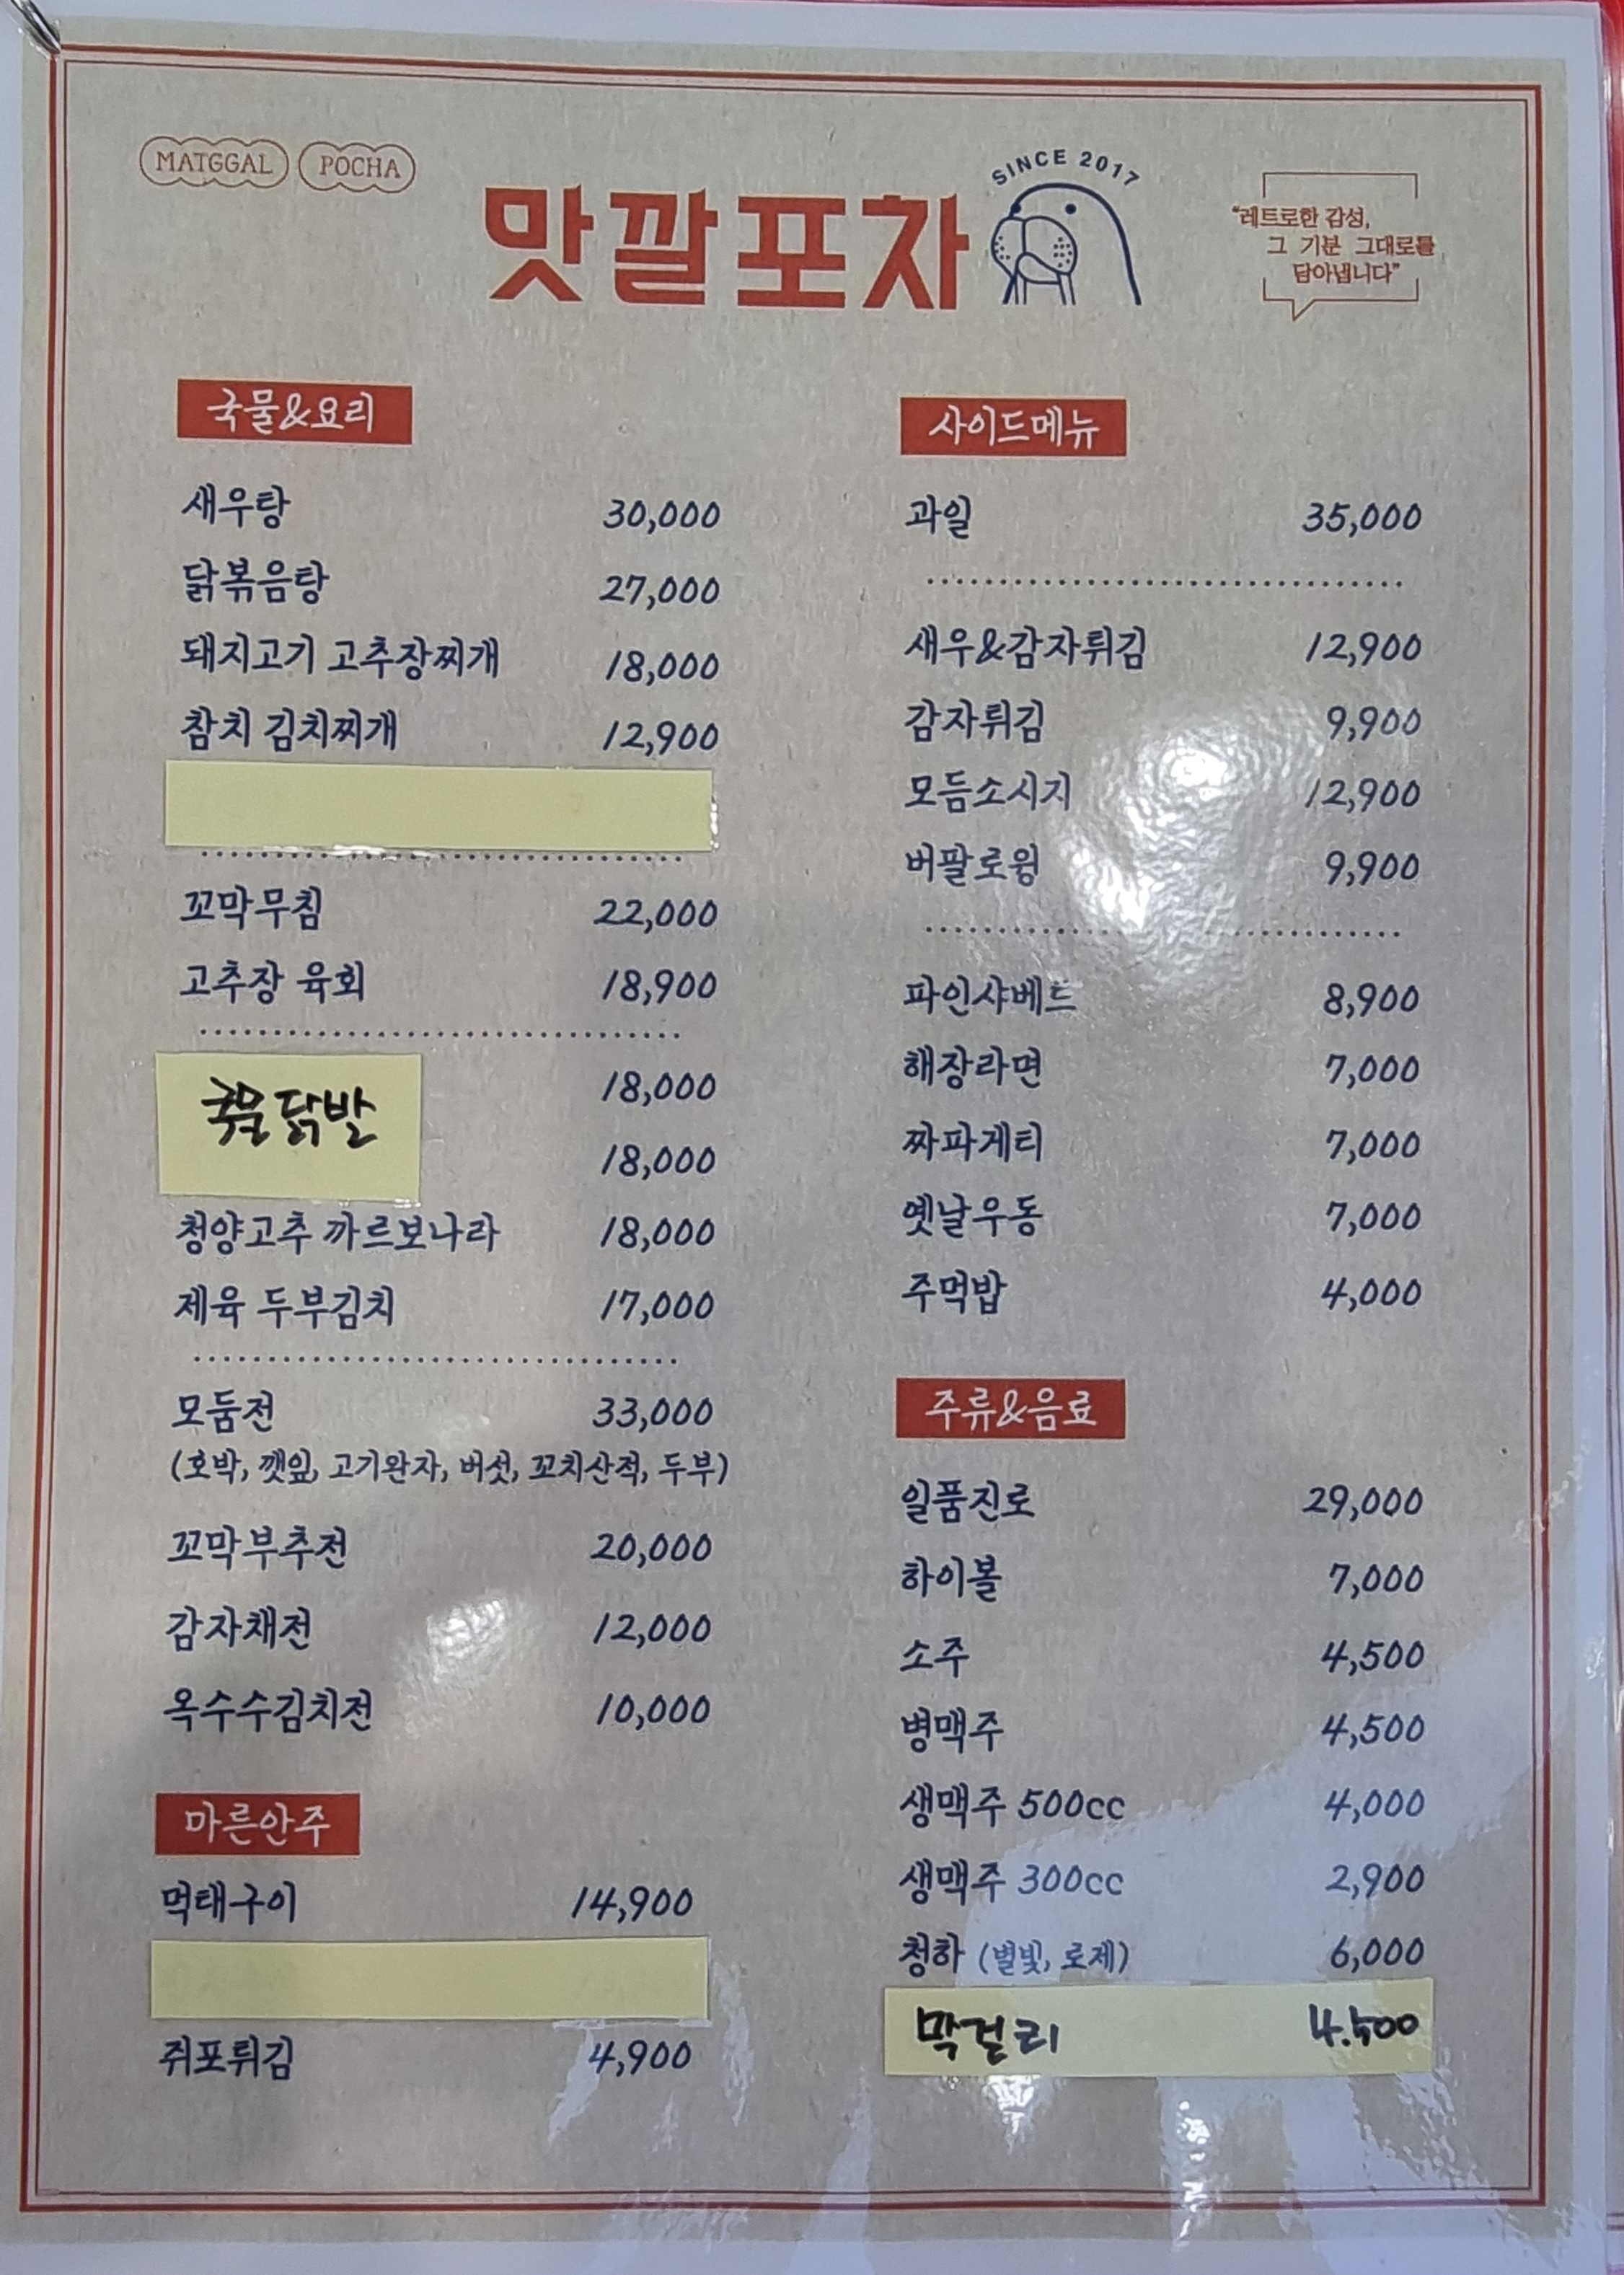 MATGGAL POCHA
맛깔포차
SINCE 2017
"레트로한 감성,
그 기분 그대로를
담아냅니다"
국물&요리
새우탕 30,000
닭볶음탕 27,000
돼지고기 고추장찌개 18,000
참치 김치찌개 12,900
꼬막무침 22,000
고추장 육회 18,900
국물닭발 18,000
18,000
청양고추 까르보나라 18,000
제육 두부김치 17,000
모둠전 33,000
(호박, 깻잎, 고기완자, 버섯, 꼬치산적, 두부)
꼬막부추전 20,000
감자채전 12,000
옥수수김치전 10,000
마른안주
먹태구이 14,900
쥐포튀김 4,900
사이드메뉴
과일 35,000
새우&감자튀김 12,900
감자튀김 9,900
모듬소시지 12,900
버팔로윙 9,900
파인샤베트 8,900
해장라면 7,000
짜파게티 7,000
옛날우동 7,000
주먹밥 4,000
주류&음료
일품진로 29,000
하이볼 7,000
소주 4,500
병맥주 4,500
생맥주 500cc 4,000
생맥주 300cc 2,900
청하 (별빛, 로제) 6,000
막걸리 4.500